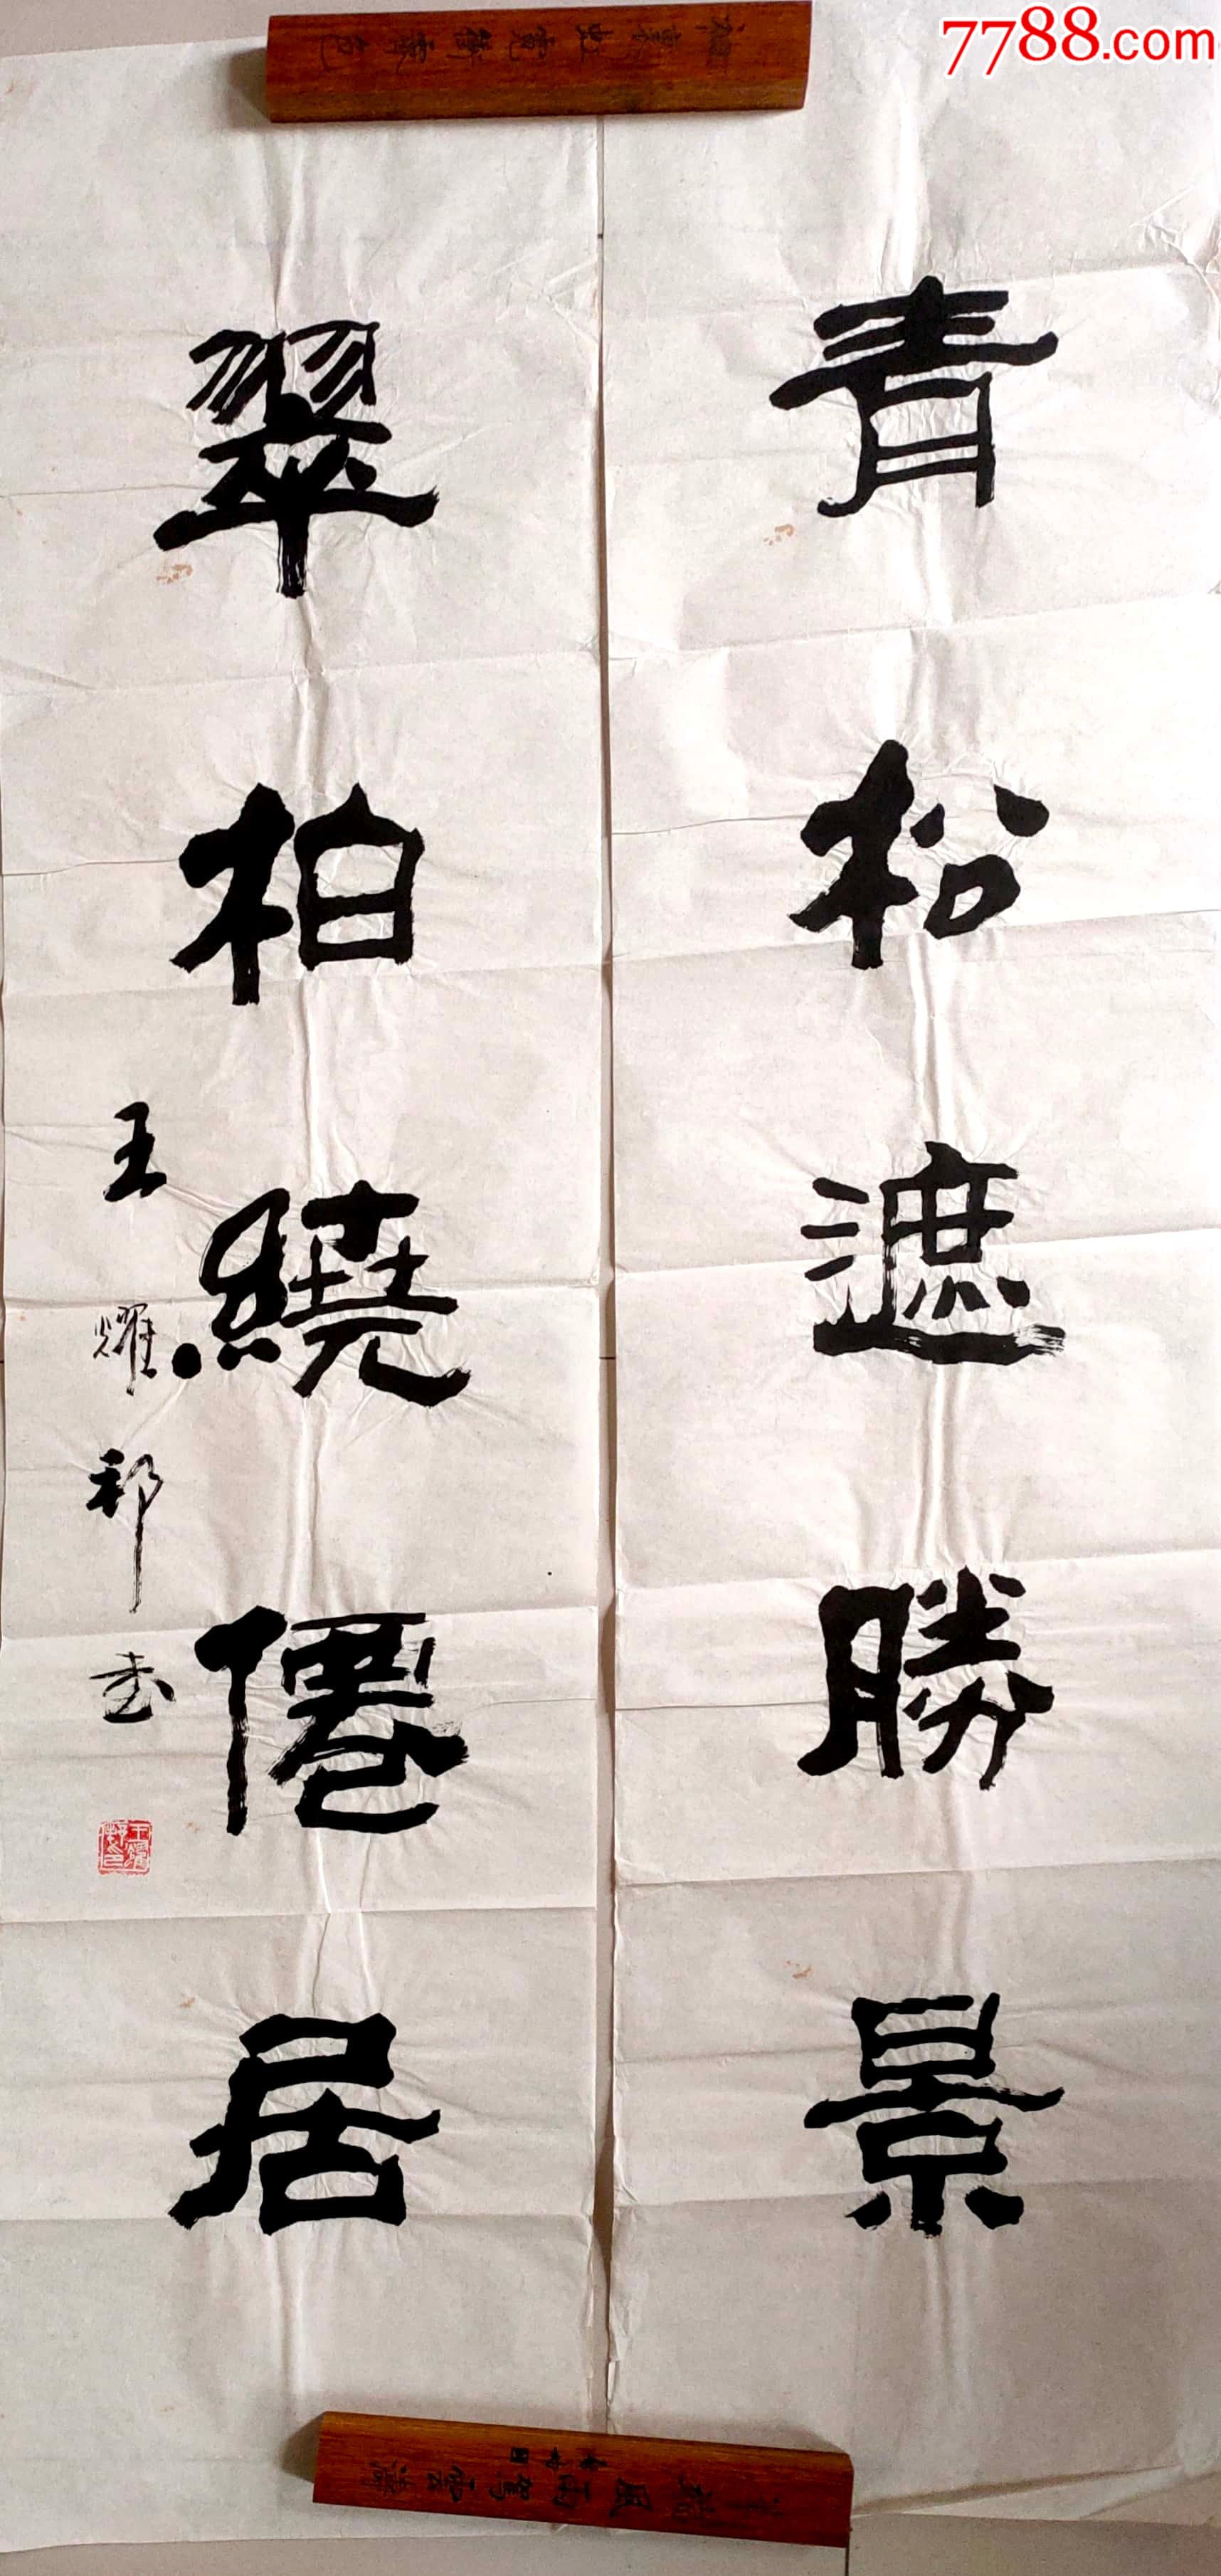 7788.com
青松遮勝景
翠柏繞僊居
王耀祁书